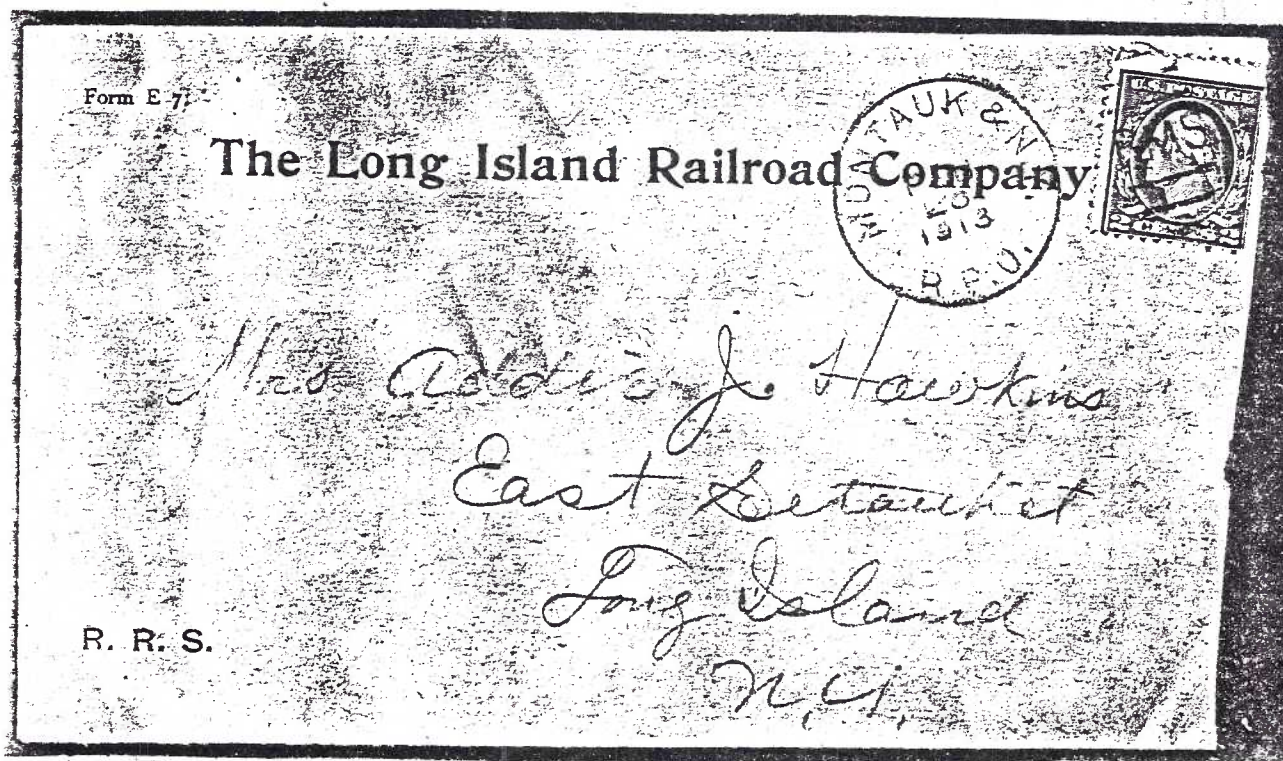 Form E 7
The Long Island Railroad Company
MONTAUK & N.Y.
20
1913
R.P.O.
RMS
U.S. POSTAGE
Mrs Addie J. Hawkins
East Setauket
Long Island
N.Y.
R. R. S.